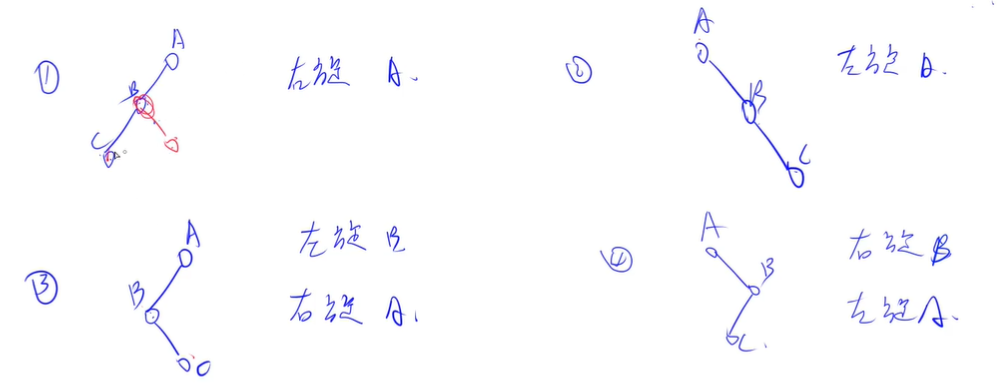 ① A B C 右旋 A.
② A B C 左旋 A.
③ A B 左旋 B
右旋 A.
④ A B C. 右旋 B
左旋 A.